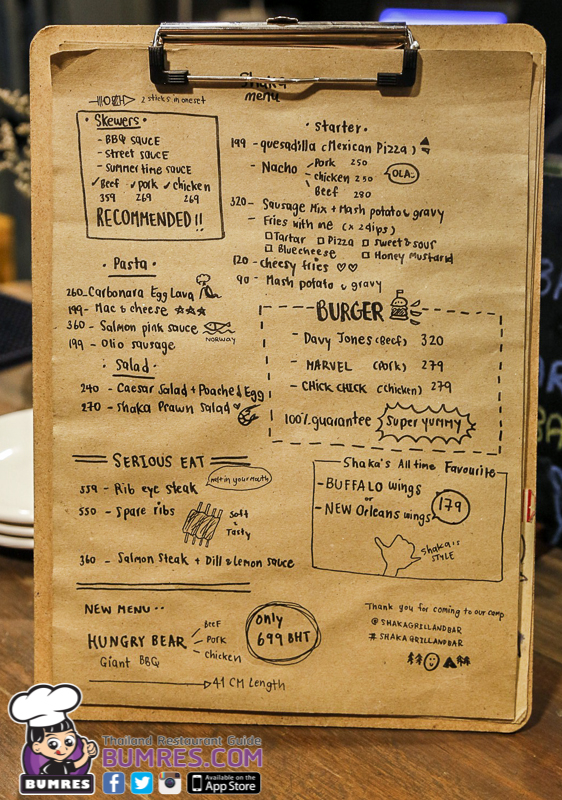 Shaka
menu
2 sticks in one set
• Skewers •
- BBQ sauce
- street sauce
- summertime sauce
✓Beef ✓pork ✓chicken
359 269 269
RECOMMENDED!!
• Pasta •
260_Carbonara Egg Lava
199- Mac & cheese ☆☆☆
360 - Salmon pink sauce
NORWAY
199 - Olio sausage
: Salad •
240 - Caesar Salad + Poached Egg
270 - Shaka Prawn Salad
• starter •
199 - quesadilla (Mexican Pizza)
- Nacho
Pork 250
chicken 250
Beef 280
OLA~
320- Sausage Mix + Mash potato & gravy
- Fries with me (x 2dips)
□Tartar □ Pizza □ sweet & sour
□ Blue cheese □ Honey Mustard
120 - cheesy fries ♡♡
90 - Mash potato & gravy
BURGER
- Davy Jones (Beef) 320
- MARVEL (Pork) 279
- CHICK CHICK (chicken) 279
100% guarantee super YUMMY
SERIOUS EAT
559 - Rib eye steak
melt in your mouth
550 - Spare ribs
Soft
&
Tasty
360 - Salmon Steak + Dill & Lemon sauce
Shaka's All time Favourite
- BUFFALO wings
or
- NEW Orleans wings
179
shaka's
STYLE
NEW MENU ••
HUNGRY BEAR
Giant BBQ
Beef
Pork
Chicken
only
699 BHT
41 CM Length
Thank you for coming to our camp
@ SHAKAGRILLANDBAR
# SHAKAGRILLANDBAR
Thailand Restaurant Guide
BUMRES.COM
BUMRES
Available on the
App Store